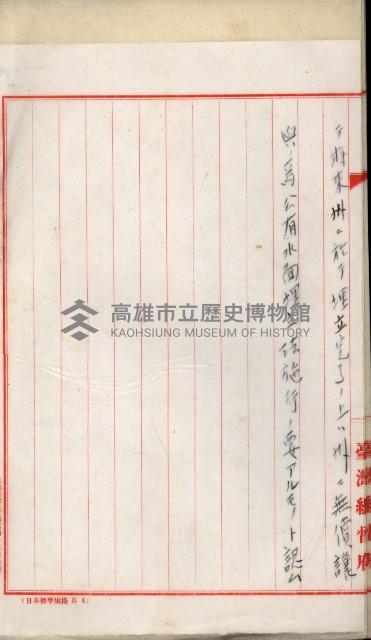 テ將來州ニ於テ埋立完了ノ上ハ州ニ無償讓
與ノ爲公有水面埋立法施行ノ要アルモノト認ム
臺灣總督府
高雄市立歷史博物館
KAOHSIUNG MUSEUM OF HISTORY
(日本標準規格 B 4)